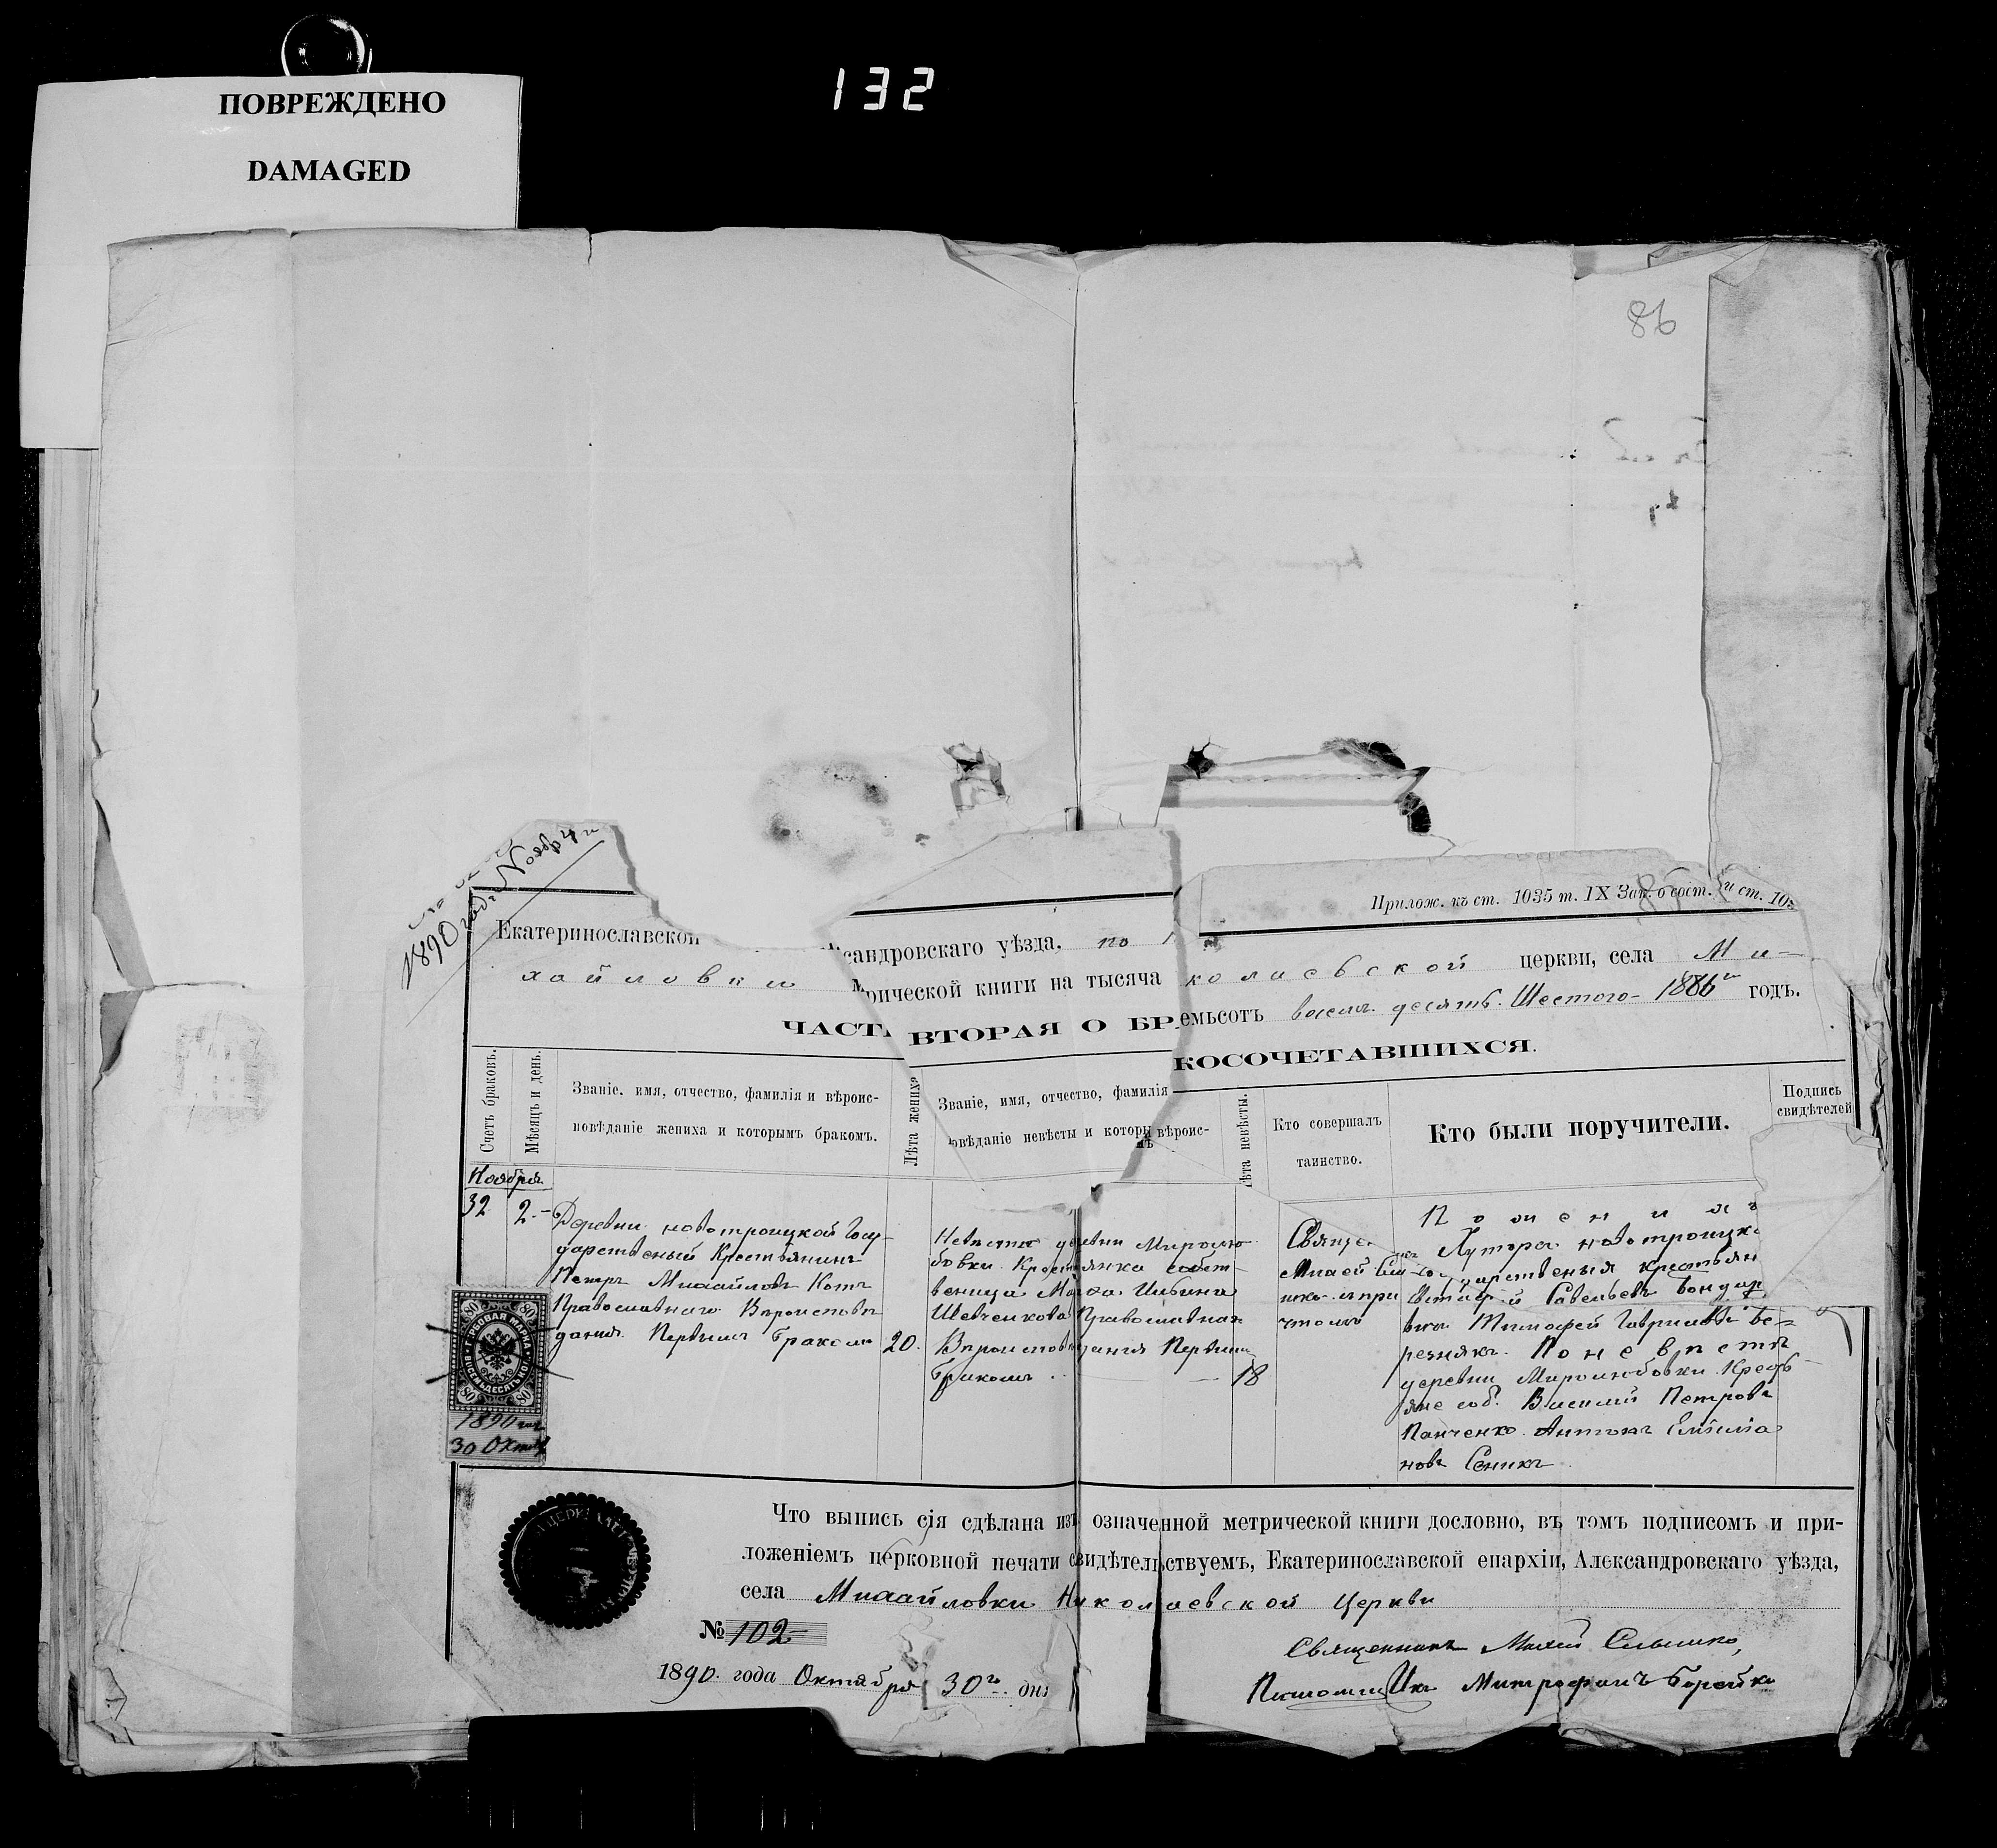 ПОВРЕЖДЕНО
DAMAGED
132
86
1890 года Ноября 4
Прилож. къ ст. 1035 т. IX Зак. о сост. и ст. 103
Екатеринославской сандровскаго уѣзда, по
колаевской церкви, села Ми-
хайловки рической книги на тысяча
емьсотъ восемь десятъ Шестого 1886 годъ.
ЧАСТЬ ВТОРАЯ О БРАКОСОЧЕТАВШИХСЯ.
Счетъ браковъ.
Мѣсяцъ и день.
Званіе, имя, отчество, фамилія и вѣроис-
повѣданіе жениха и которымъ бракомъ.
Лѣта жениха
Званіе, имя, отчество, фамилія вѣроис-
повѣданіе невѣсты и которы
Лѣта невѣсты.
Кто совершалъ
таинство.
Кто были поручители.
Подпись
свидѣтелей
Ноября
32
2.
Деревни новотроицкой Госу-
дарственый Крестьянинъ
Петръ Михайловъ Котъ
Православнаго Вѣроисповѣ
данія Первымъ Бракомъ
20.
Невѣста деревни Миролю
бовки Крестьянка собст-
веница Марфа Ивовна
Шевченкова Православнаго
Вѣроисповѣданія Первымъ
Бракомъ
18
Священ
Михей Сли
ко при
чтомъ
По женихѣ
Хутора новотроицко
государственыя крестьян
Савельевъ Бондар
Тимофей Гавриловъ Бе-
резнякъ. По невѣстѣ
деревни Миролюбовки Крестья
яне соб. Василий Петровъ
Панченко Антонъ Емілиа
новъ Сеникъ
80 80
ГЕРБОВАЯ МАРКА
ВОСЕМЬДЕСЯТЪ КОП.
80 80
1890 года
30 Октяб
Что выпись сія сдѣлана изъ означенной метрической книги дословно, въ томъ подписомъ и при-
ложеніемъ церковной печати свидѣтельствуемъ, Екатеринославской епархіи, Александровскаго уѣзда,
села Михайловки Николаевской Церкви
№ 102
Священникъ Михей
1890. года Октября 30го дня
Псаломщикъ Митрофанъ Борейко